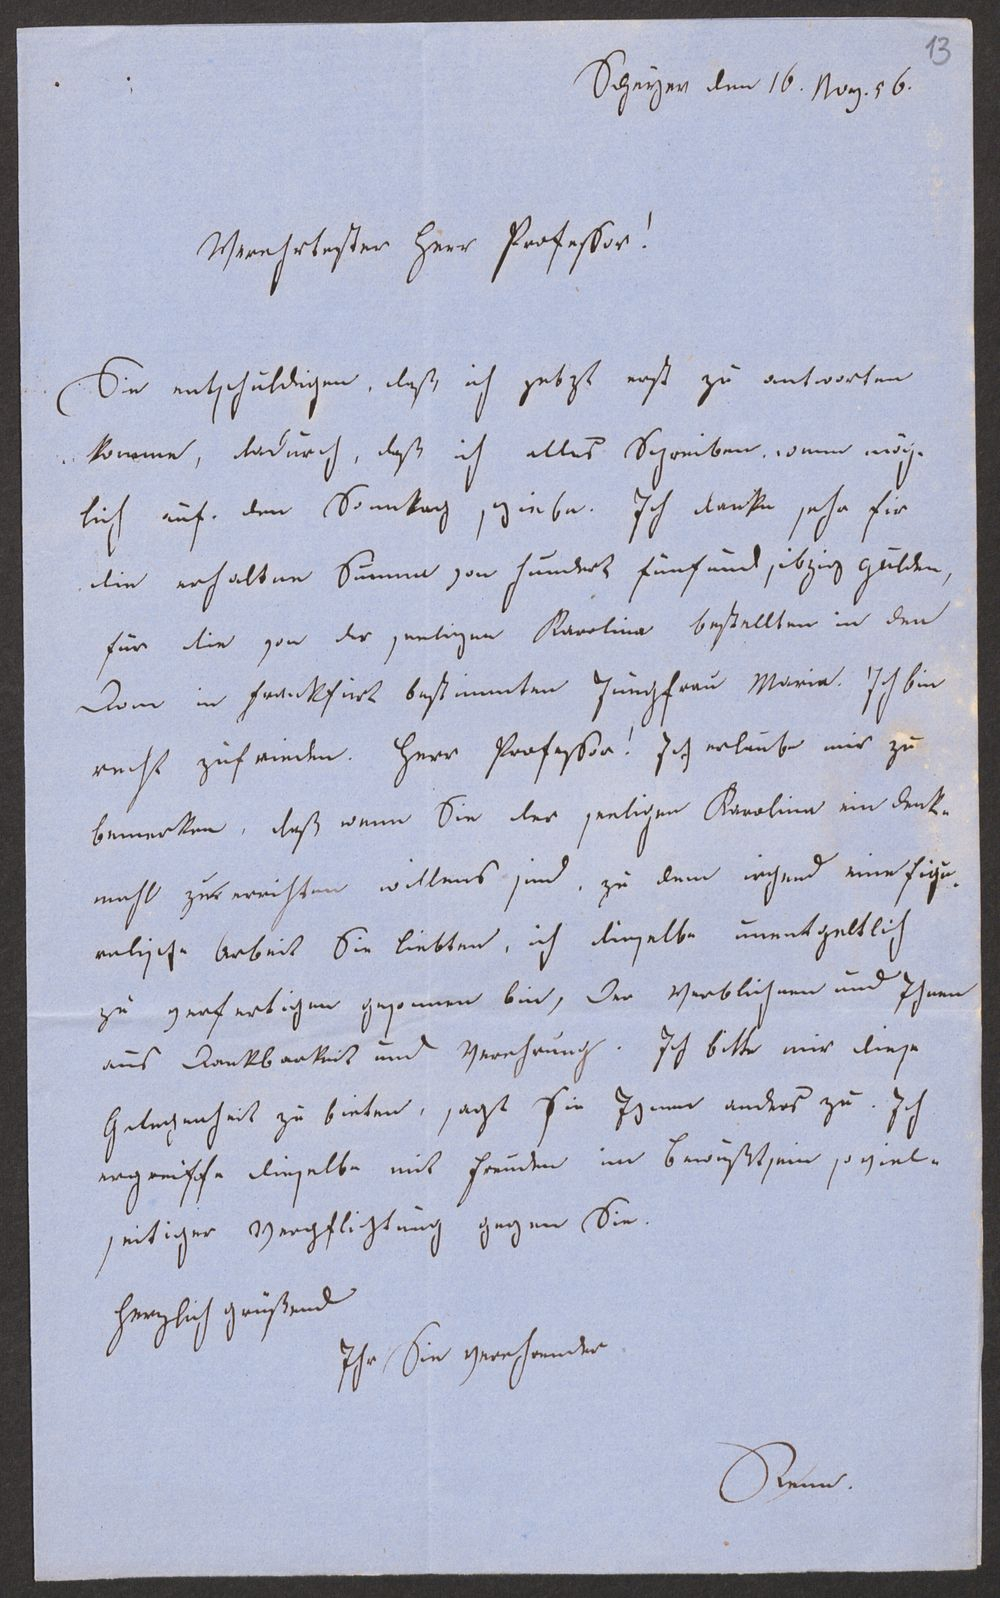 13
Speyer den 16. Nov. 56.
Verehrtester Herr Professor!
Sie entschuldigen, daß ich jetzt erst zu antworten
komme, dadurch, daß ich alles Schreiben, wenn mög-
lich auf den Sonntag schiebe. Ich danke sehr für
die erhaltne Summe von hundert fünfundsibzig Gulden,
für die von der seeligen Karolina bestellten in den
Dom in Frankfurt bestimmten Jungfrau Maria. Ich bin
recht zufrieden. Herr Professor! Ich erlaube mir zu
bemerken, daß wenn Sie der seeligen Karolina ein Denk-
mahl zu errichten willens sind, zu dem irgend eine figu-
ralische Arbeit Sie liebten, ich dieselbe unentgeltlich
zu verfertigen gesonnen bin, der Verblichnen und Ihnen
aus Dankbarkeit und Verehrung. Ich bitte mir diese
Gelegenheit zu bieten, sagt sie Ihnen anders zu. Ich
ergreiffe dieselbe mit Freuden im Bewußtsein soviel-
seitiger Verpflichtung gegen Sie.
Herzlich grüßend
Ihr Sie verehrender
Renn.